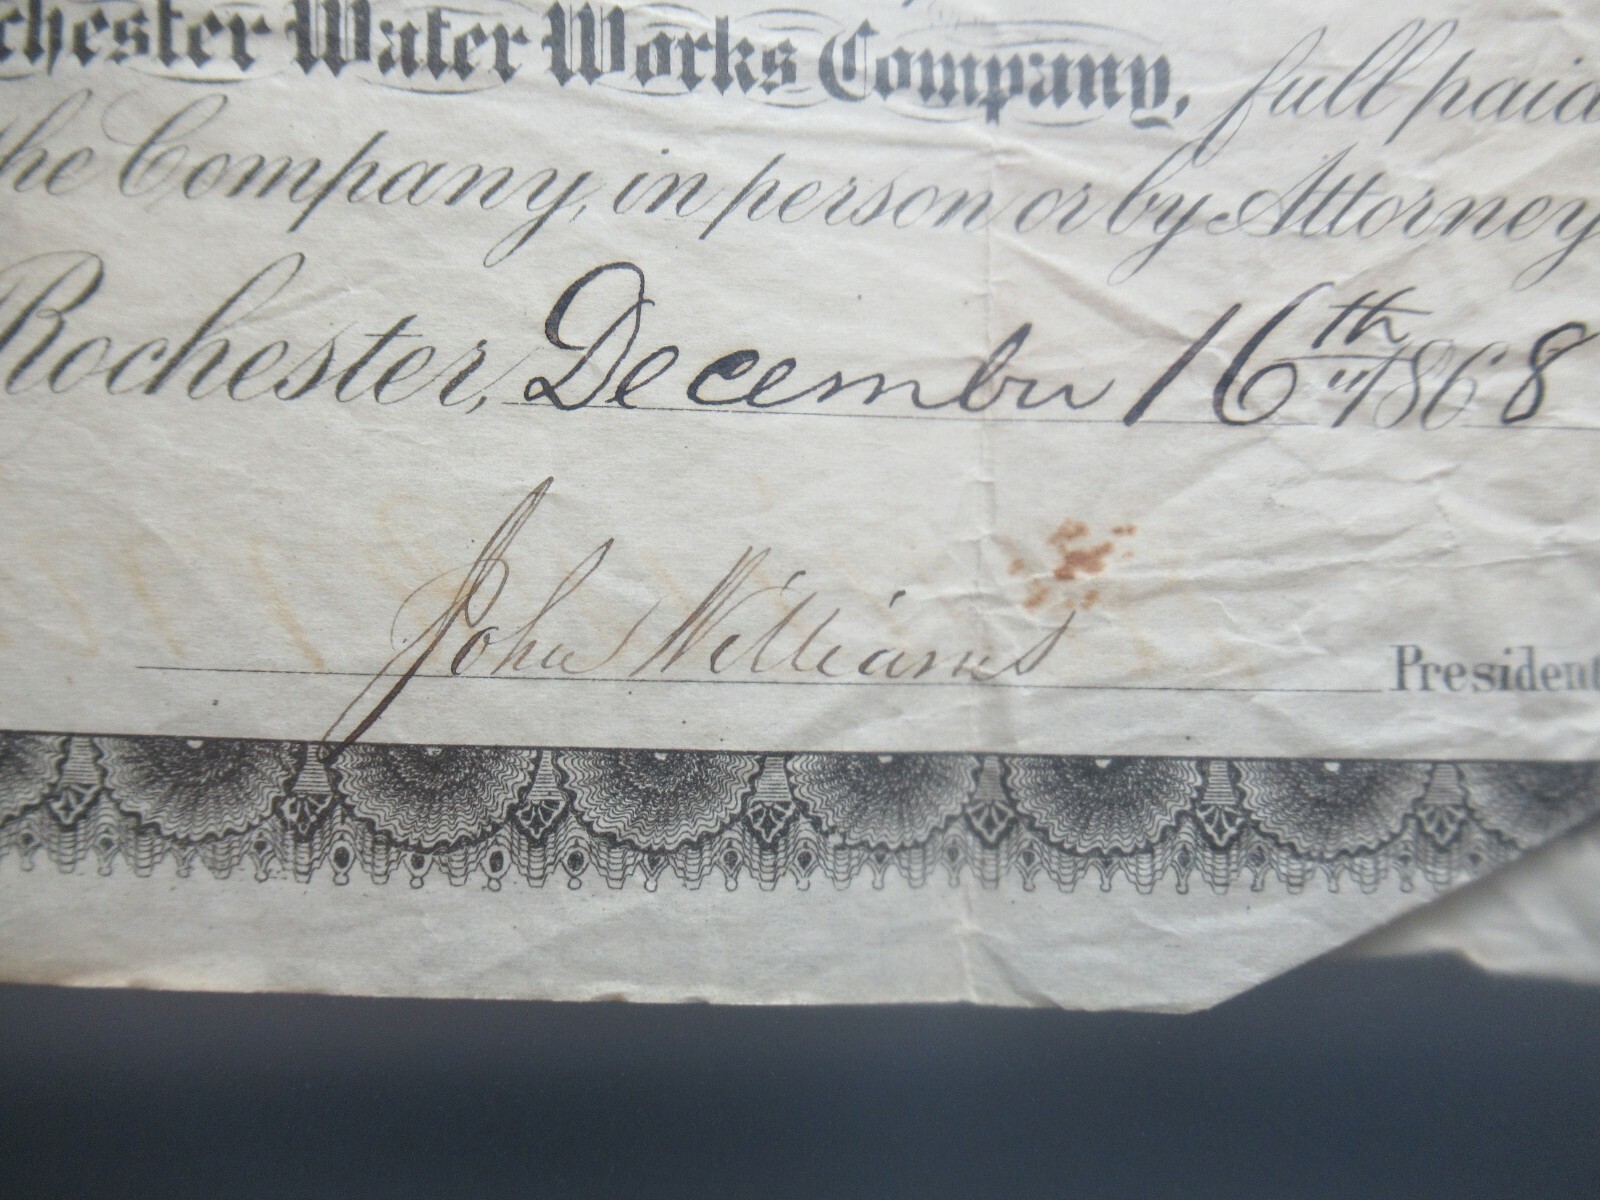 chester Water Works Company, full paid
the Company, in person or by Attorney
Rochester, December 16th 1868
John Williams President